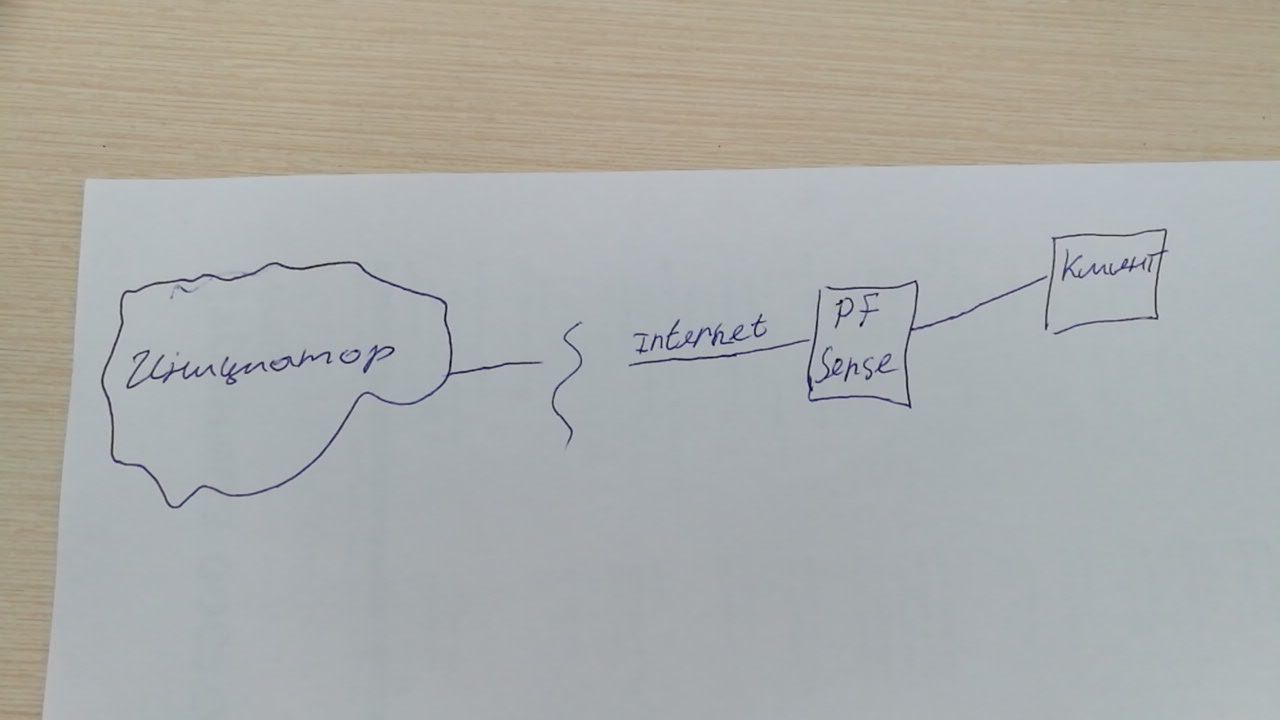 Инициатор
Internet
PF
Sense
Клиент